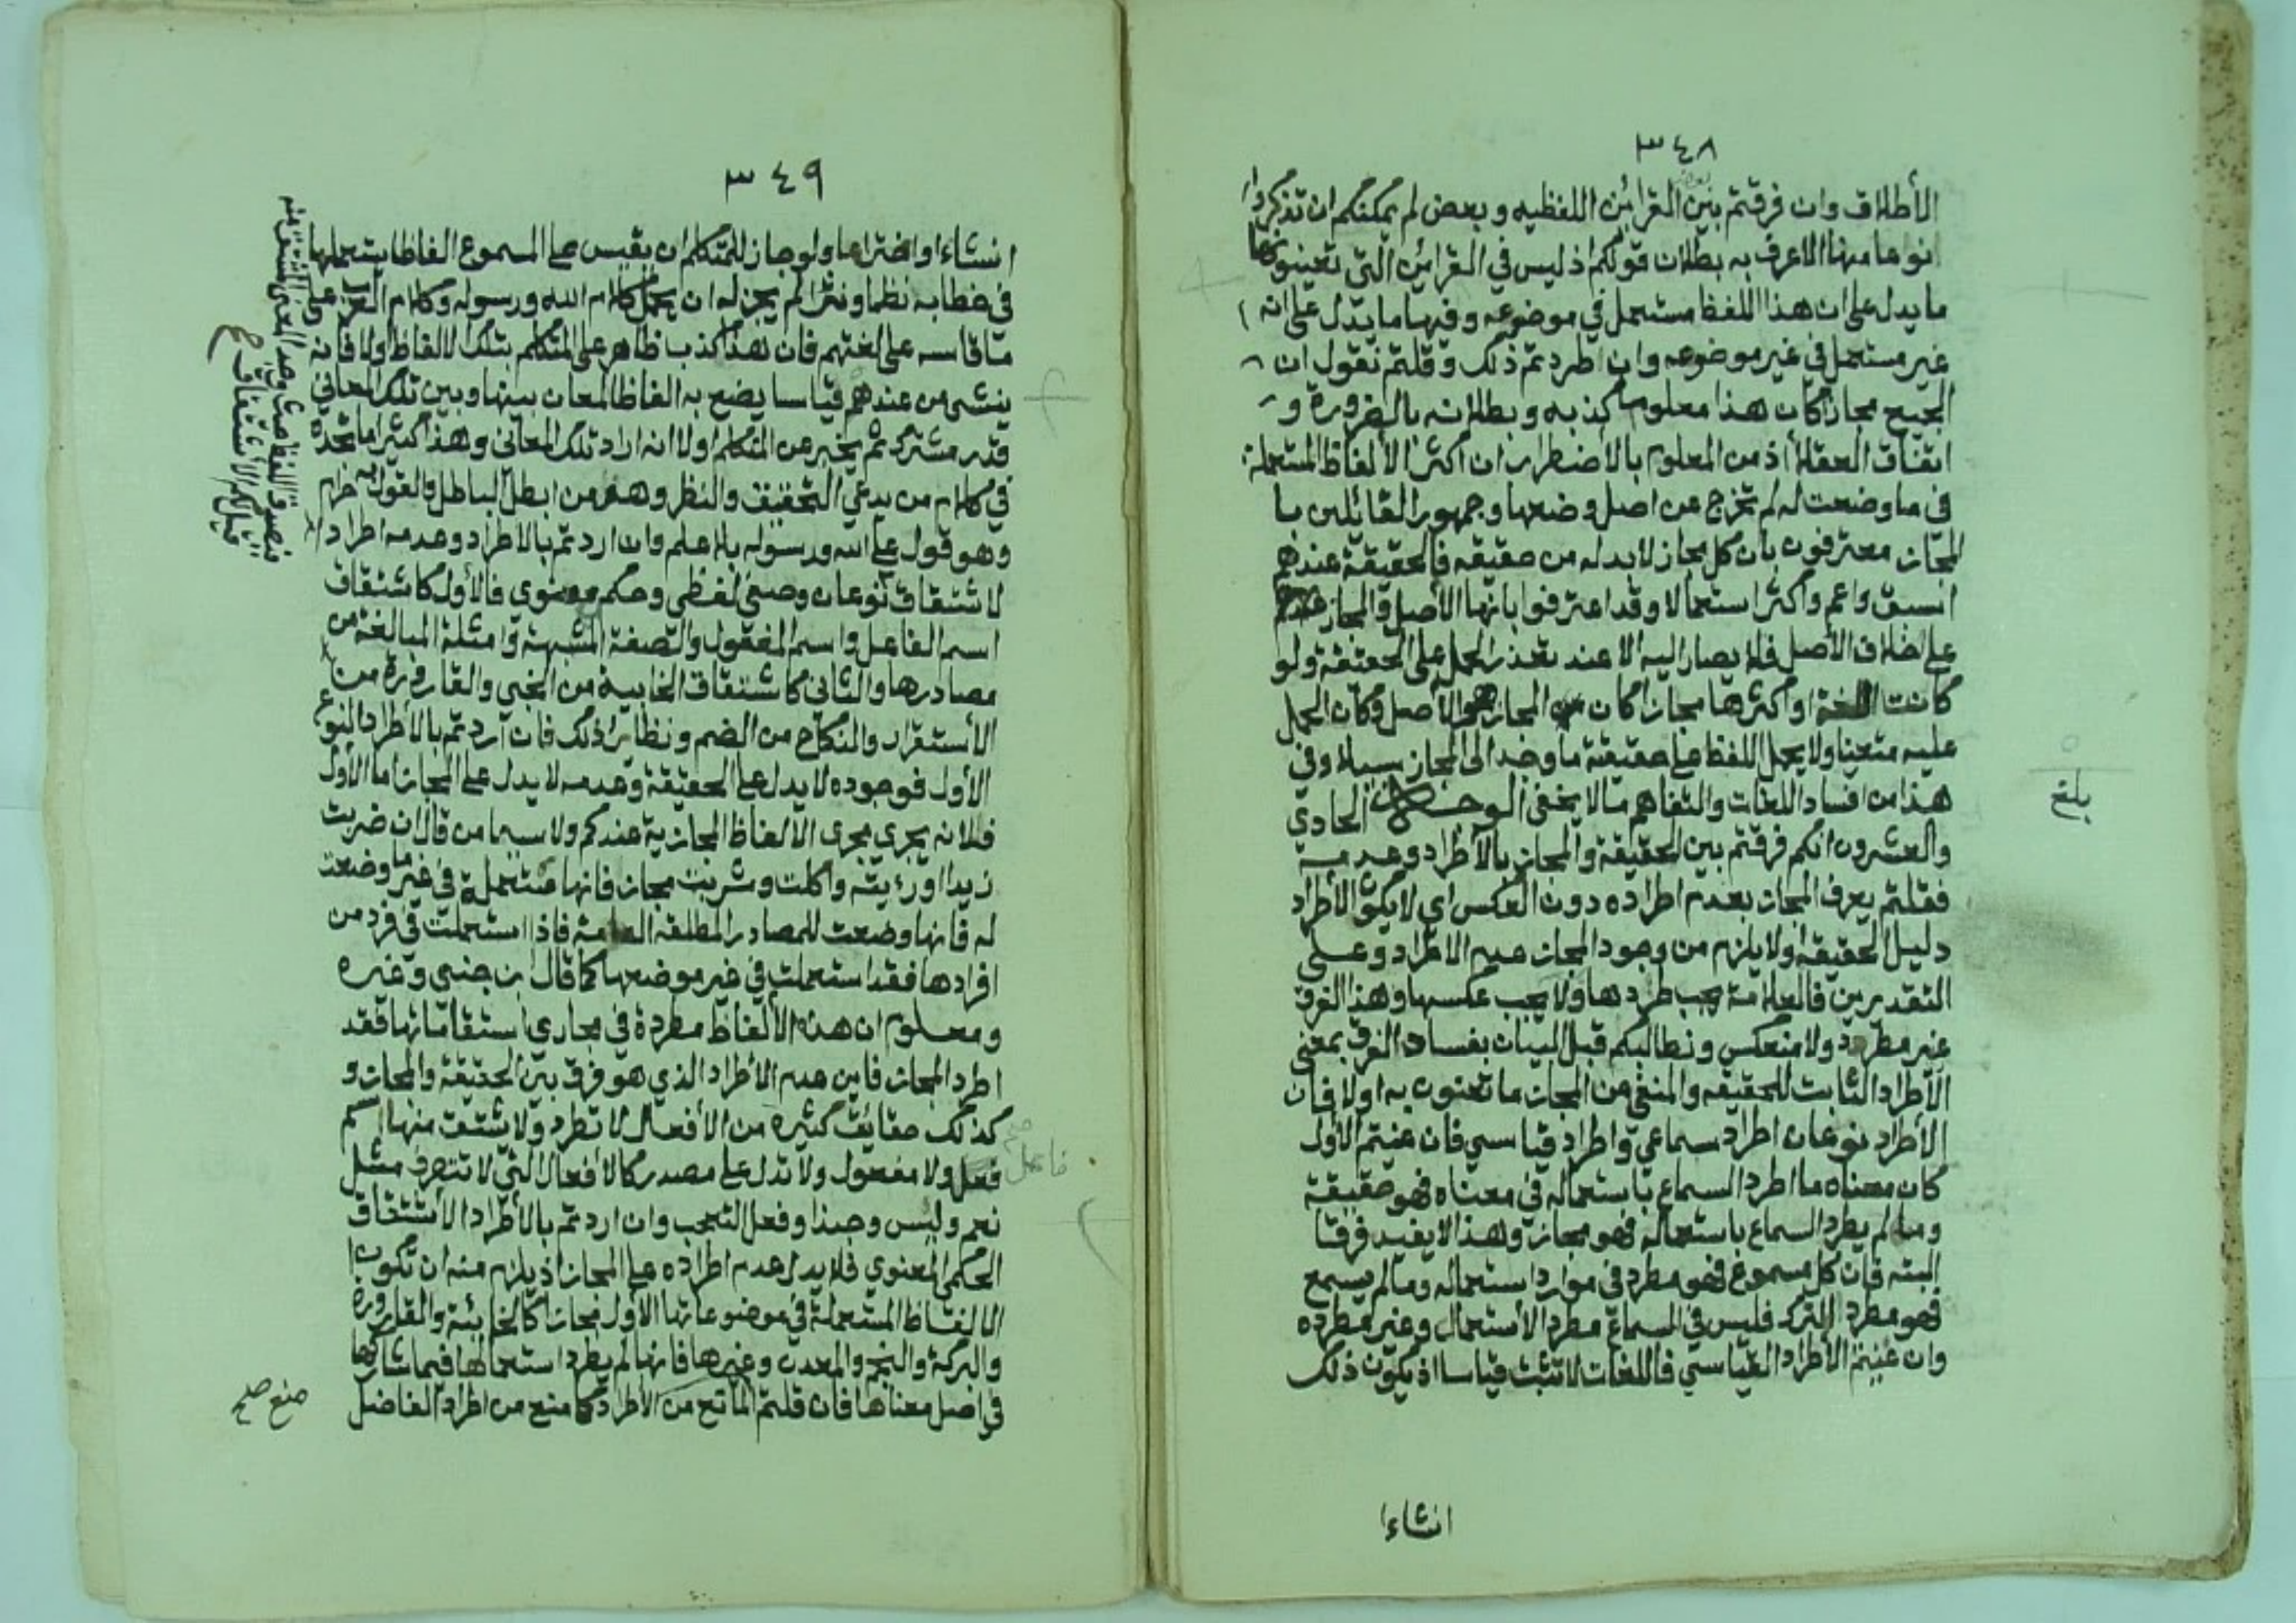 ٣٤٨
الأطلاق وان فرقتم بين بعض القرائن اللفظيه وبعض لم يمكنكم ان تذكروا
نوعا منها الا عرف به بطلان قولكم اذ ليس في القرائن التي تعينونها
ما يدل على ان هذا اللفظ مستعمل في موضوعه وفيها ما يدل على انه
غير مستعمل في غير موضوعه وان اطردتم ذلك وقلتم نقول ان
الجميع مجاز كان هذا معلوما كذبه وبطلانه بالضرورة و
اتفاق العقلاء اذ من المعلوم بالأضطرار ان اكثر الألفاظ المستعملة
في ما وضعت له لم تخرج من اصل وضعها وجمهور القائلين با
لمجاز معترفون بان كل مجاز لابد له من حقيقه فالحقيقة عندهم
اسبق واعم واكثر استعمالا وقد اعترفوا بانها الأصل والمجاز
على خلاف الأصل فلا يصار اليه الا عند تعذر الحمل على الحقيقة ولو
كانت اللغة او اكثرها مجازا كان المجاز هو الأصل وكان الحمل
عليه متعينا ولا يحمل اللفظ على حقيقة ما وجد الى المجاز سبيلا وفي
هذا من افساد اللغات والتفاهم ما لا يخفى الوجه الحادي
والعشرون انكم فرقتم بين الحقيقة والمجاز بالأطراد وعدمه
فقلتم يعرف المجاز بعدم اطراده دون العكس اي لا يكون الأطراد
دليل الحقيقة اولا يلزم من وجود المجاز عدم الاطراد وعلى
التقديرين فالعلامة يجب طردها ولا يجب عكسها وهذا الفرق
غير مطرد ولا منعكس ونطالبكم قبل البيان بفساد الفرق بمعنى
الأطراد الثابت للحقيقه والمنفي من المجاز ما تعنون به اولا فان
الأطراد نوعان اطراد سماعي واطراد قياسي فان عنيتم الأول
كان معناه ما اطرد السماع باستعماله في معناه فهو حقيقة
وما لم يطرد السماع باستعماله فهو مجاز وهذا لا يفيد فرقا
البته فان كل مسموع فهو مطرد في موارد استعماله وما لم يسمع
فهو مطرد الترك فليس في السماع مطرد الأستعمال وغير مطرده
وان عنيتم الأطراد القياسي فاللغات لا تثبت قياسا اذ يكون ذلك
بلغ
انشاءا
٣٤٩
انشاءا واختراعا ولو جاز للمتكلم ان يقيس على المسموع الفاظا يستعملها
في خطابه نظما ونثرا لم يجز له ان يحمل كلام الله ورسوله وكلام العرب على
ما قاسه على لغتهم فان هذا كذب ظاهر على المتكلم بتلك الالفاظ اولا فانه
ينشئ من عندهم قياسا يضع به الفاظا لمعان بينها وبين تلك المعاني
قدر مشترك ثم يخبر عن المتكلم اولا انه اراد تلك المعاني وهذا كثيرا ما تجده
في كلام من يدعي التحقيق والنظر وهو من ابطل الباطل والقول به حرام
وهو قول على الله ورسوله بلا علم وان اردتم بالاطراد وعدمه اطراد
لاشتقاق نوعان وصفي لفظي وحكم معنوي فالأول كاشتقاق
اسم الفاعل واسم المفعول والصفة المشبهة وامثلة المبالغة من
مصادرها والثاني كاشتقاق الخابية من الخبي والقارورة من
الأستقرار والنكاح من الضم ونظاير ذلك فان اردتم بالأطراد النوع
الأول فوجوده لا يدل على الحقيقة وعدمه لا يدل على المجاز اما الأول
فلانه يجري مجرى الالفاظ المجازية عندكم ولا سيما من قال ان ضربت
زيدا او رءيته واكلت وشربت مجاز فانها مستعملة في غير ما وضعت
له فانها وضعت للمصادر المطلقه العامة فاذا استعملت في فرد من
افرادها فقد استعملت في غير موضعها كما قال ابن جني وغيره
ومعلوم ان هذه الألفاظ مطردة في مجاري اشتقاقاتها فقد
اطرد المجاز فاين عدم الأطراد الذي هو فرق بين الحقيقة والمجاز و
كذلك حقايق كثيرة من الأفعال لا تطرد ولا يشتق منها اسم
فعل ولا مفعول ولا تدل على مصدر كالأفعال التي لا تنصرف مثل
نعم وليس وحبذا وفعل التعجب وان اردتم بالأطراد الأشتقاق
الحكمي المعنوي فلا يدل عدم اطراده على المجاز اذ يلزم منه ان تكون
الالفاظ المستعملة في موضوعاتها الأول مجازا كالخابئة والقارورة
والبركة والنجم والمعدن وغيرها فانها لم يطرد استعمالها فيما شاركها
في اصل معناها فان قلتم المانع من الأطراد كما منع من اطراد الفاضل
فاعل صح
منع صلح